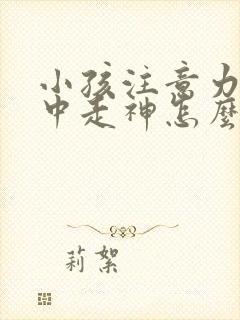 小孩注意力
中走神怎麼
莉絮